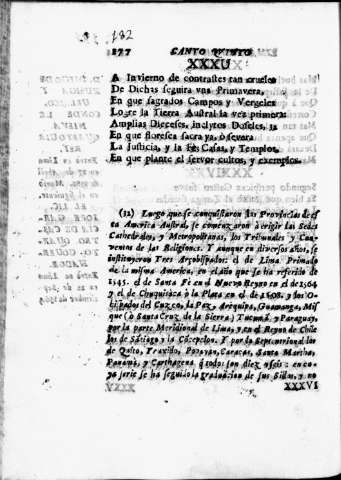 182
177 CANTO QUINTO
XXXV
A Invierno de contrastes tan crueles
De Dichas seguira vna Primavera,
En que sagrados Campos y Vergeles
Logre la Tierra Austral la vez primera
Amplias Dieceses, inclytos Doseles,
En que floresca sacra ya, ò severa
La Justicia, y la Fè; Casas, y Templos
En que plante el fervor cultos, y exemplos.
(32) Luego que se conquistaron las Provincias de es
ta America Austral, se començaron à erigir las Sedes
Cathedrales, y Metropolitanas, los Tribunales y Con-
ventos de las Religiones. Y aunque en diversos años, se
instituyeron Tres Arçobispados: el de Lima Primado
de la misma America, en el año que ya ha referido de
1545. el de Santa Fe en el Nuevo Reyno en el de 1564
y el de Chuquisáca ò la Plata en el de 1608. y los O-
bispados del Cuzco, la Paz, Arequipa, Guamanga, Mis
que ò Santa Cruz de la Sierra; Tucumã, y Paraguay,
por la parte Meridional de Lima, y en el Reyno de Chile
los de Sãtiago y la Cõcepciõn. Y por la Septentrional los
de Quito, Truxillo, Popayan, Caracas, Santa Martha,
Panamà, y Carthagena q̃ todos son diez y seis: en cu-
ya serie se ha seguido la graduacion de sus Sillas, y no
XXXVI